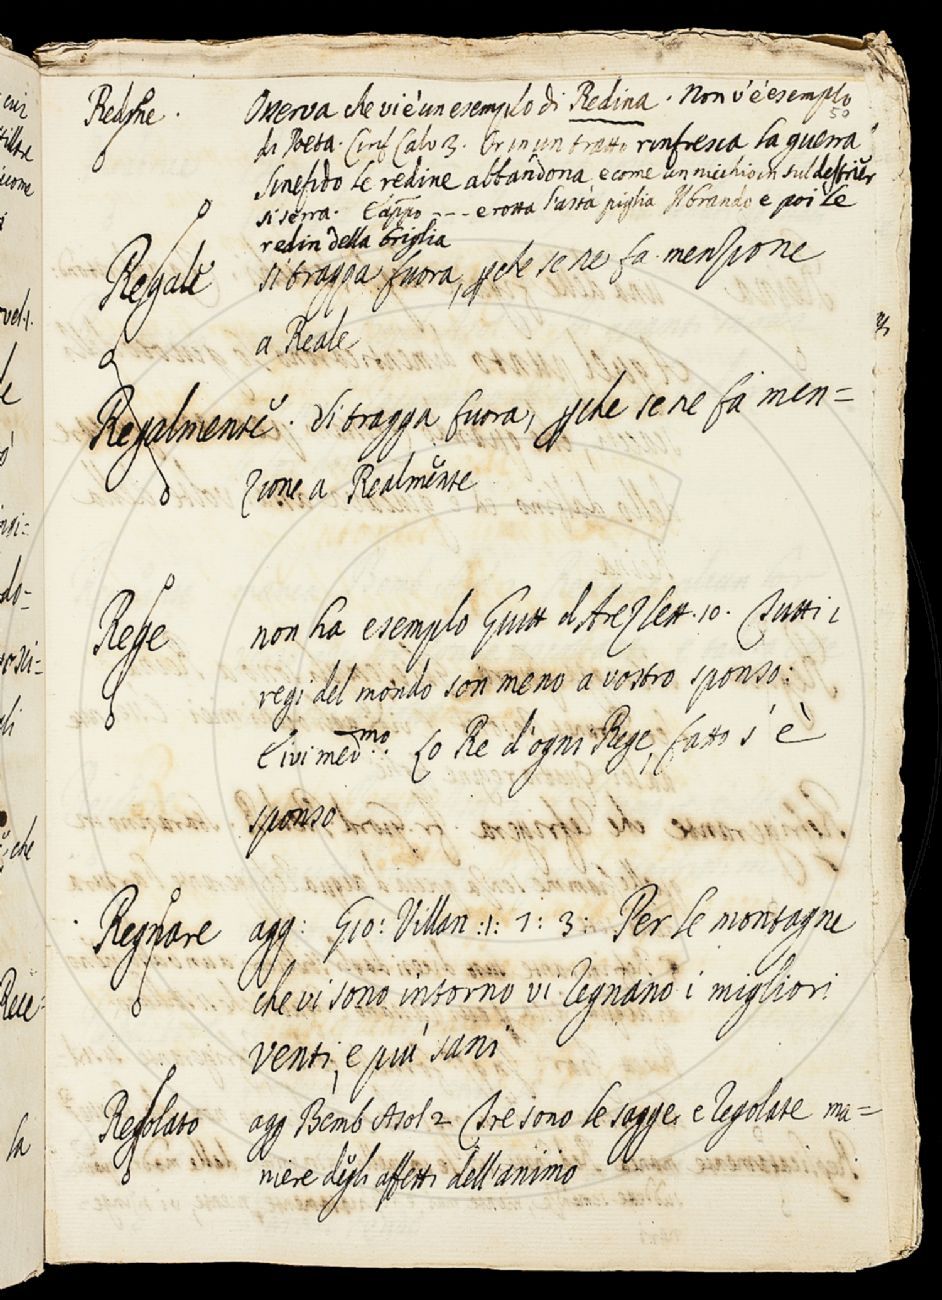 Redine. Osserva che vi è un esemplo di Redina. Non v'è esemplo
50
di Poeta. Cirif Calv 3. Or in un tratto rinfresca la guerra
Sinefido le redine abbandona e come un nicchio in sul destrier
si serra. E appo --- e rotta l'asta piglia Il brando e poi le
redin della briglia
Regale si tragga fuora, pche se ne fa menzione
a Reale
Regalmente. Si tragga fuora, pche se ne fa men=
zione a Realmente
Rege non ha esemplo Guitt d Arez lett. 10. Tutti i
regi del mondo son meno a vostro sponso:
E ivi medmo. Lo Re d'ogni Rege, fatto s'è
sponso
Regnare agg: Gio: Villan :1: 7: 3: Per le montagne
che vi sono intorno vi regnano i migliori
venti, e più sani
Regolato agg Bemb Asol 2 Tre sono le sagge e regolate ma=
niere degli affetti dell'animo